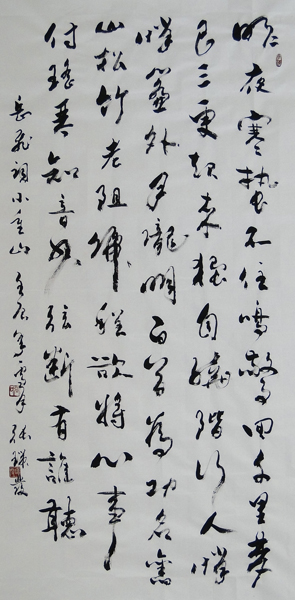 昨夜寒蛩不住鳴驚回千里夢
已三更起來獨自繞階行人悄
悄簾外月朧明白首為功名舊
山松竹老阻歸程欲將心事
付瑤琴知音少弦斷有誰聽
岳飛詞小重山壬辰年